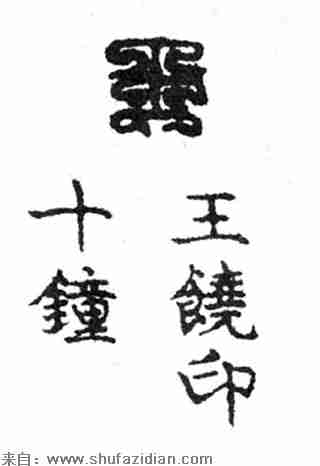 王饒印
十鐘
来自：www.shufazidian.com